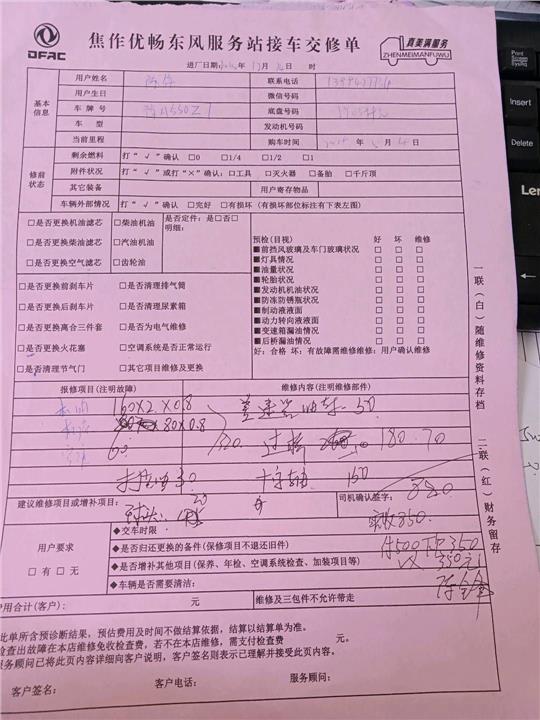 DFAC
焦作优畅东风服务站接车交修单
真美满服务
ZHENMEIMANFUWU
进厂日期: 年 月 日 时
基本信息
用户姓名 联系电话
用户生日 微信号码
车牌号 底盘号码
车型 发动机号码
当前里程 购车时间 年 月 日
修前状态
剩余燃料 打“√”确认 □0 □1/4 □1/2 □1
附件状况 打“√”或打“×”确认:□工具 □灭火器 □备胎 □千斤顶
其它装备 用户寄存物品
车辆外部情况 打“√”确认 □完好 □有损坏(有损坏部位标注有下表左图)
□是否更换机油滤芯 □柴油机油
□是否更换柴油滤芯 □汽油机油
□是否更换空气滤芯 □齿轮油
是否定件:是□否□
明细:
□是否更换前刹车片 □是否清理排气筒
□是否更换后刹车片 □是否清理尿素箱
□是否更换离合三件套 □是否为电气维修
□是否更换火花塞 □空调系统是否正常运行
□是否清理节气门 □其它项目维修及更换
预检(目视) 好 坏 维修
■前挡风玻璃及车门玻璃状况 □ □ □
■灯具情况 □ □ □
■油量状况 □ □ □
■轮胎状况 □ □ □
■发动机机油状况 □ □ □
■防冻防锈瓶状况 □ □ □
■制动液液面 □ □ □
■动力转向液液面 □ □ □
■变速箱漏油情况 □ □ □
■后桥漏油情况 □ □ □
好:合格 坏:有故障需维修维修:用户确认维修
一联(白)随维修资料存档
二联(红)财务留存
报修项目(注明故障) 维修内容(注明维修部件)
160×2×0.8
×80×0.8
50
320
180.70
30 十字轴 150
建议维修项目或增补项目:
司机确认签字:
880
实收850.
付500下欠350
350元
用户要求
□有 □无
◆交车时限
◆是否归还更换的备件(保修项目不退还旧件)
◆是否增补其他项目(保养、年检、空调系统检查、加装项目等)
◆车辆是否需要清洁:
用合计(客户): 元 维修及三包件不允许带走
此单所含预诊断结果,预估费用及时间不做结算依据,结算以结算单为准。
检查出故障在本店维修免收检查费,若不在本店维修,需支付检查费 元。
服务顾问已将此页内容详细向客户说明,客户签名则表示已理解并接受此页内容。
客户签名: 客户电话: 服务顾问:
Print
Scrn
SysRq
Insert
Delete
Len